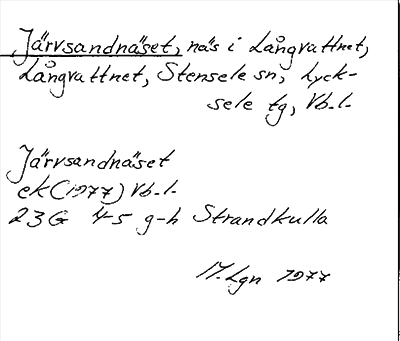 Järvsandnäset, näs i Långvattnet,
Långvattnet, Stensele sn, Lyck-
sele tg, Vb. l.
Järvsandnäset
ek (1977) Vb. l.
23G 4-5 g-h Strandkulla
M. Lgn 1977